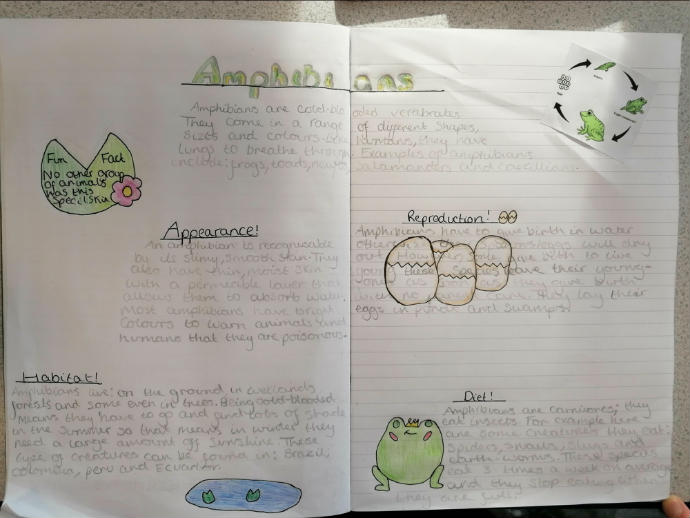 Amphibians
Amphibians are cold-blooded vertabrates.
They come in a range of different shapes,
sizes and colours. Like humans, they have
lungs to breathe through. Examples of amphibians
include: frogs, toads, newts, salamanders and caecilians.
Fun Fact
No other group
of animals
has this
special skin
Appearance!
An amphibian is recogniseable
by its slimy, smooth skin. They
also have thin, moist skin
with a permeable layer that
allows them to absorb water.
Most amphibians have bright
colours to warn animals and
humans that they are poisonous.
Habitat!
Amphibians live: on the ground in wetlands
forests and some even in trees. Being cold-blooded
means they have to go and find lots of shade
in the summer so that means in winter they
need a large amount off sunshine. These
type of creatures can be found in: Brazil,
Colombia, peru and Ecuador.
Reproduction!
Amphibians have to give birth in water
otherwise the eggs will dry
out. However, some give birth to live
young. these species leave their young-
ones as soon as they give birth
with no care. They lay their
eggs in ponds and swamps.
Diet!
Amphibians are carnivores; they
eat insects. For example here
are some creatures they eat:
Spiders, snails, slugs and
earth-worms. These species
eat 3 times a week on average
and they stop eating when
they are full.